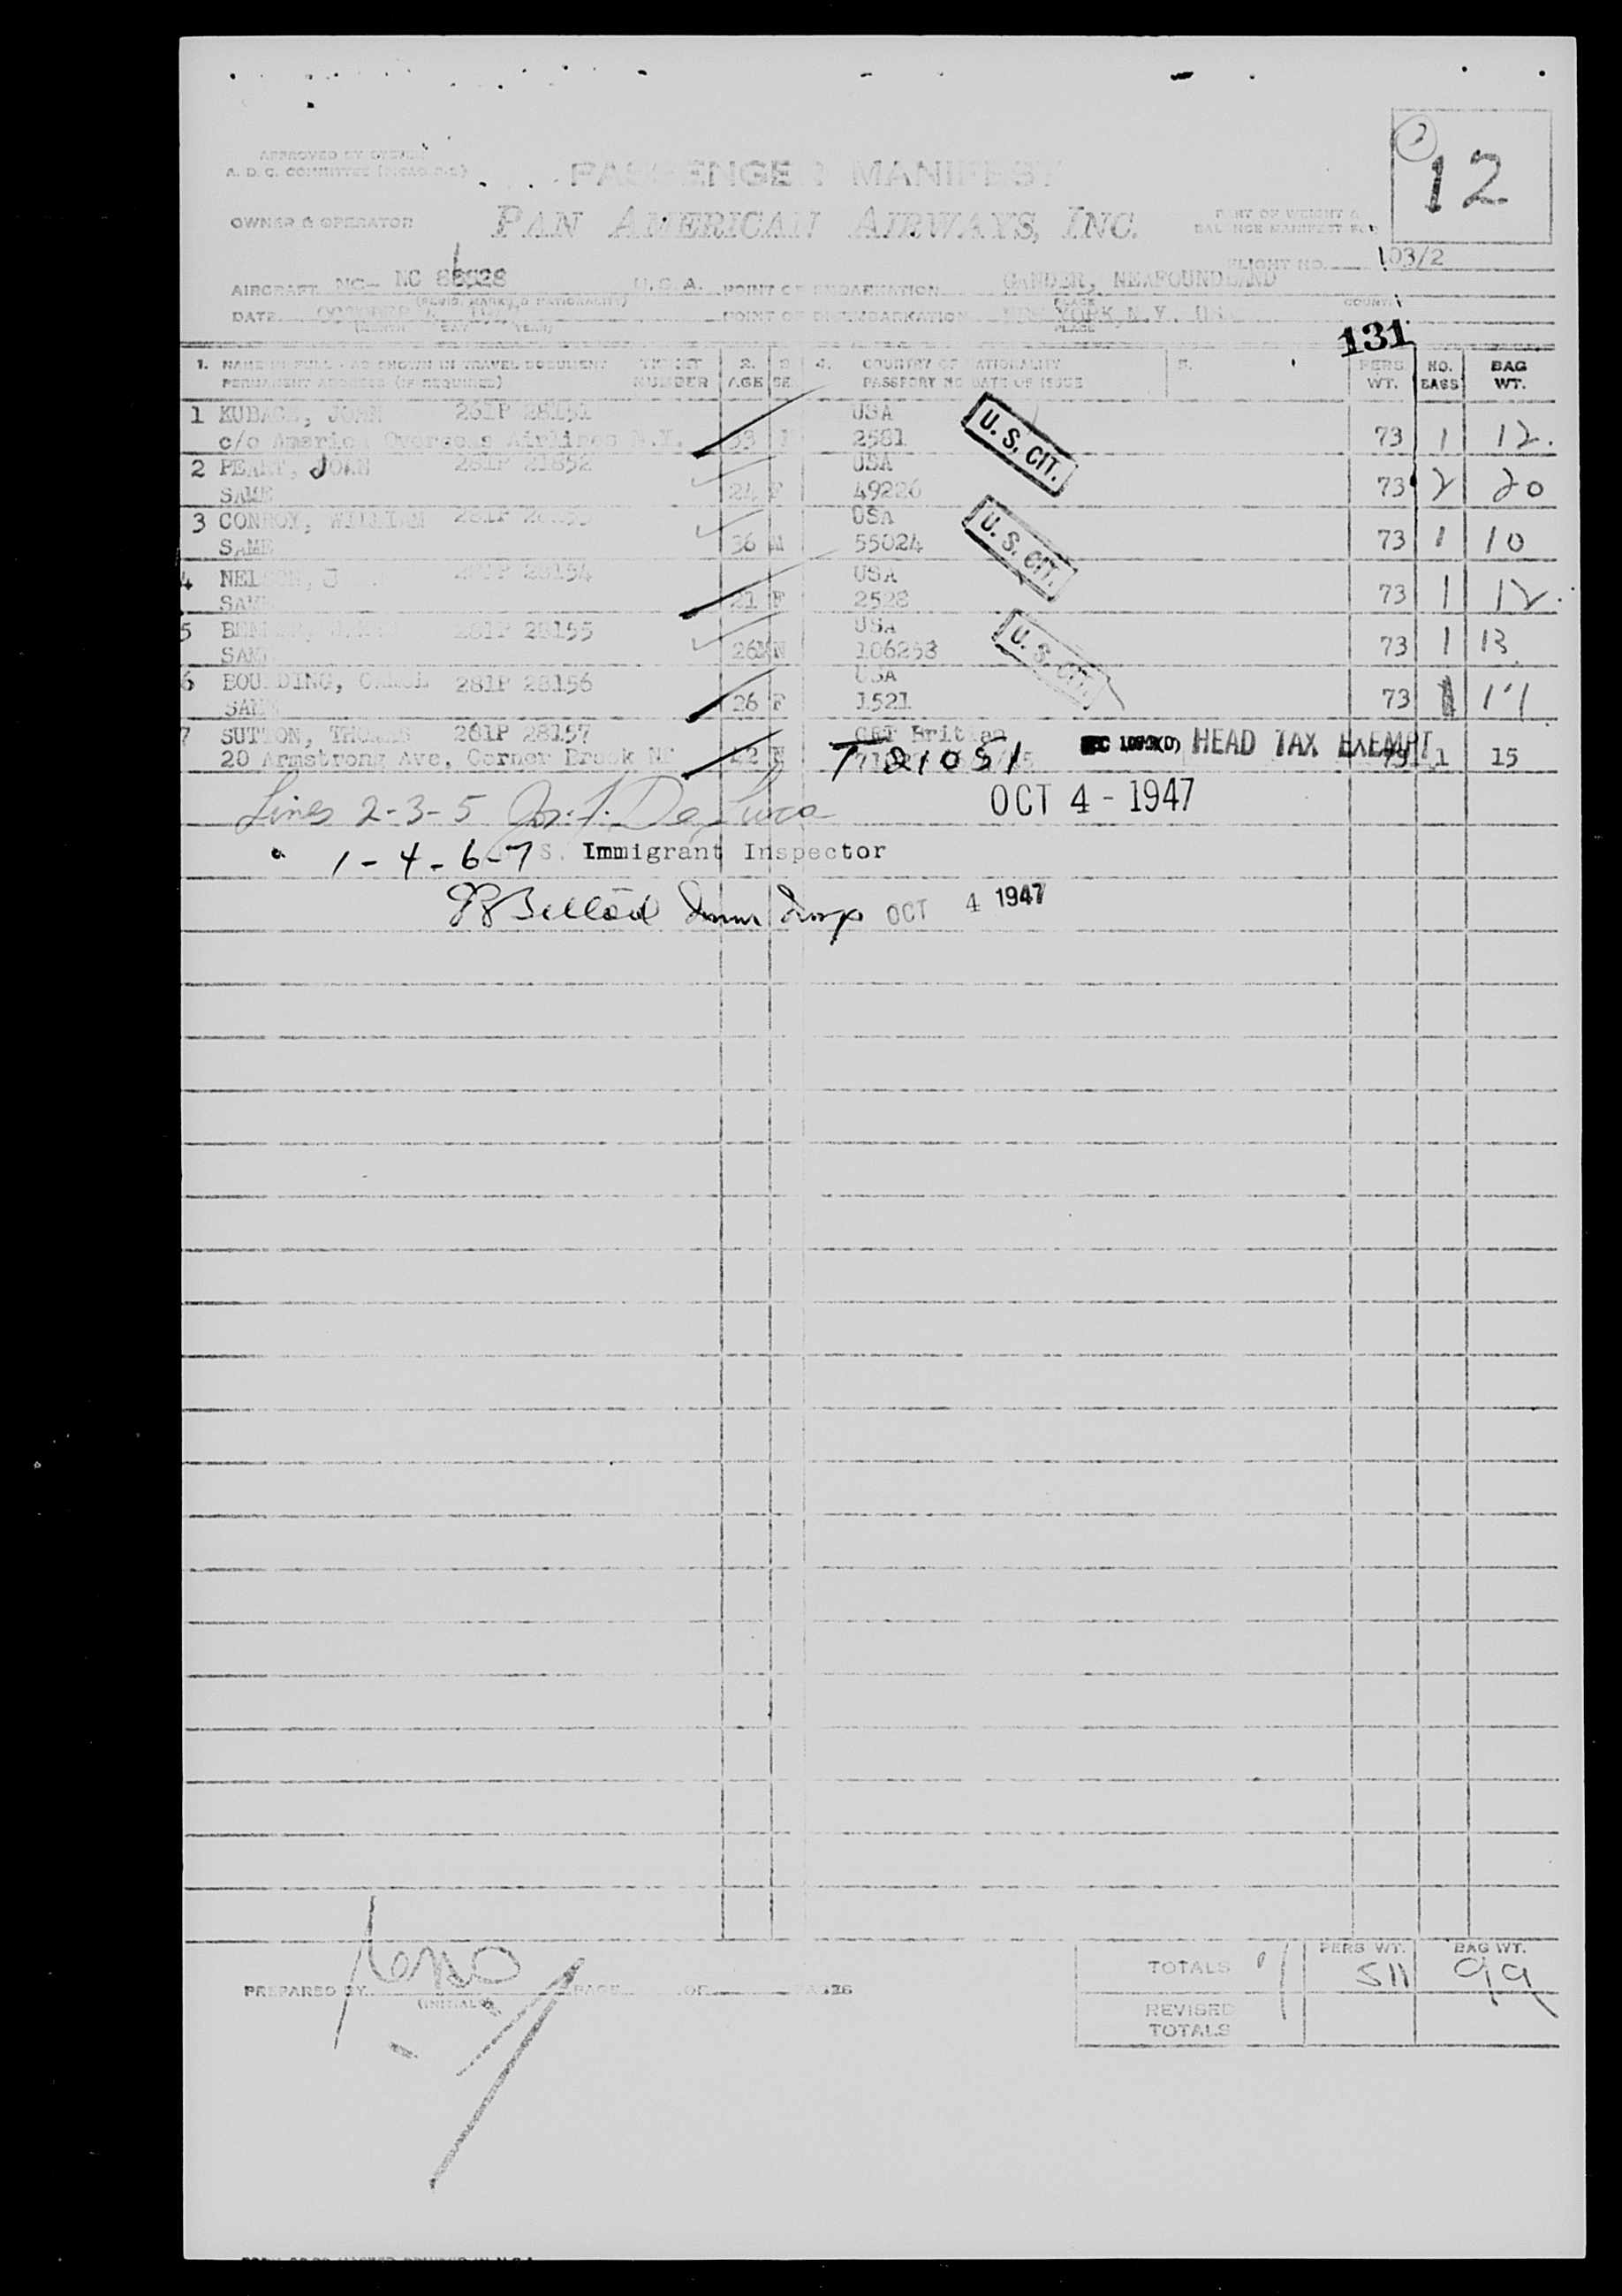 12
PASSENGER MANIFEST
A. D. C. COMMITTEE
OWNER & OPERATOR
PAN AMERICAN AIRWAYS, INC.
PART OF WEIGHT &
BALANCE MANIFEST FOR
FLIGHT NO. 103/2
AIRCRAFT NC- NC U.S.A. POINT OF EMBARKATION GANDER, NEWFOUNDLAND
(REGIS. MARKS & NATIONALITY) PLACE COUNTRY
DATE OCTOBER 4, 1947 POINT OF DISEMBARKATION NEW YORK, N.Y. USA
(MONTH DAY YEAR) PLACE
131
1. NAME IN FULL - AS SHOWN IN TRAVEL DOCUMENT TICKET 2. 3. 4. COUNTRY OF NATIONALITY 5. PERS NO. BAG
PERMANENT ADDRESS (IF REQUIRED) NUMBER AGE SEX PASSPORT NO DATE OF ISSUE WT. BAGS WT.
1 JOHN 28151 USA
c/o Overseas Airlines N.Y. 33 2581 U. S. CIT. 73 1 12.
2 USA
SAME 24 F 49226 73 2 20
3 CONROY, WILLIAM USA
SAME 36 M 55024 U. S. CIT. 73 1 10
4 NELSON, J 28154 USA
SAME 21 F 2528 73 1 12.
5 28155 USA
SAME 26 106253 U. S. CIT. 73 1 13
6 BOULDING, CAROL 281P 28156 USA
SAME 26 F 1521 73 1 17
7 SUTTON, THOMAS 281P 28157 GRT Britian
20 Armstrong Ave, Corner Brook NF 42 T 21051 HEAD TAX EXEMPT 73 1 15
Lines 2-3-5 Jos. F. De Luca OCT 4 - 1947
" 1-4-6-7 U. S. Immigrant Inspector
Imm Insp OCT 4 1947
PREPARED BY PAGE OF PAGES
(INITIALS)
PERS WT. BAG WT.
TOTALS 511 99
REVISED
TOTALS